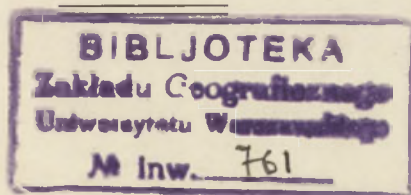 BIBLJOTEKA
Zakładu Geograficznego
Uniwersytetu Warszawskiego
№ inw. 761